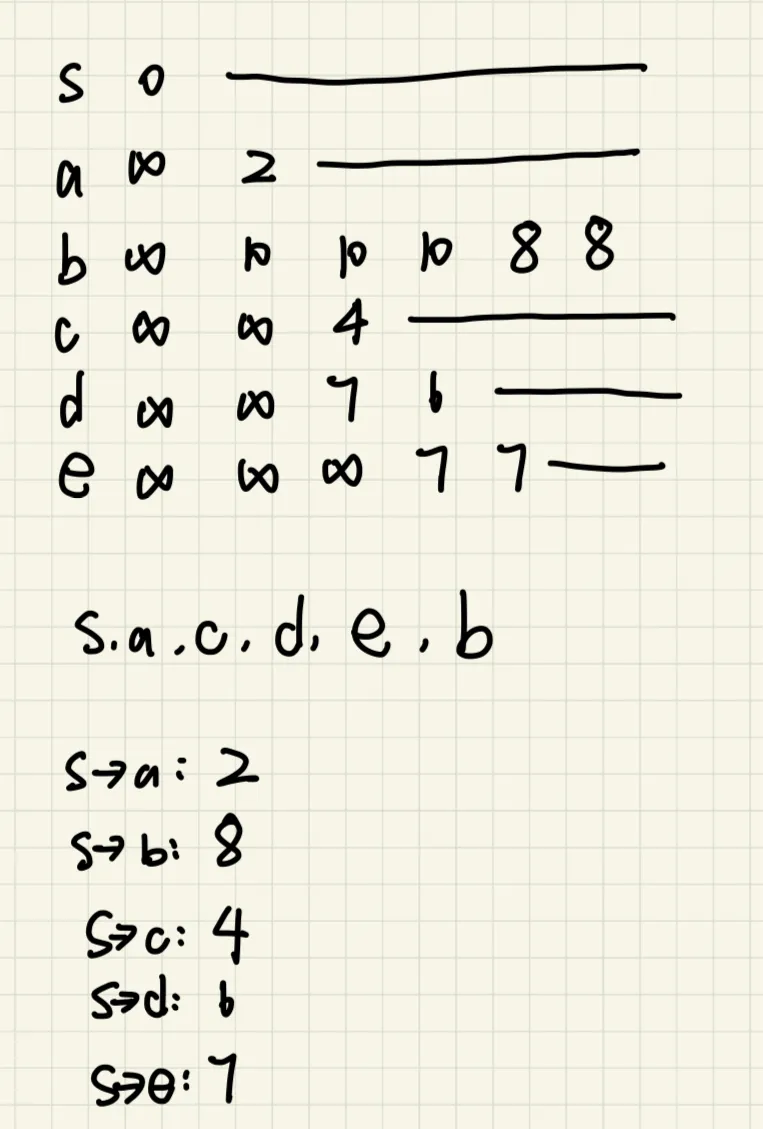 s 0
a ∞ 2
b ∞ 10 10 10 8 8
c ∞ ∞ 4
d ∞ ∞ 7 6
e ∞ ∞ ∞ 7 7
s.a,c,d,e,b
s→a: 2
s→b: 8
s→c: 4
s→d: 6
s→e: 7